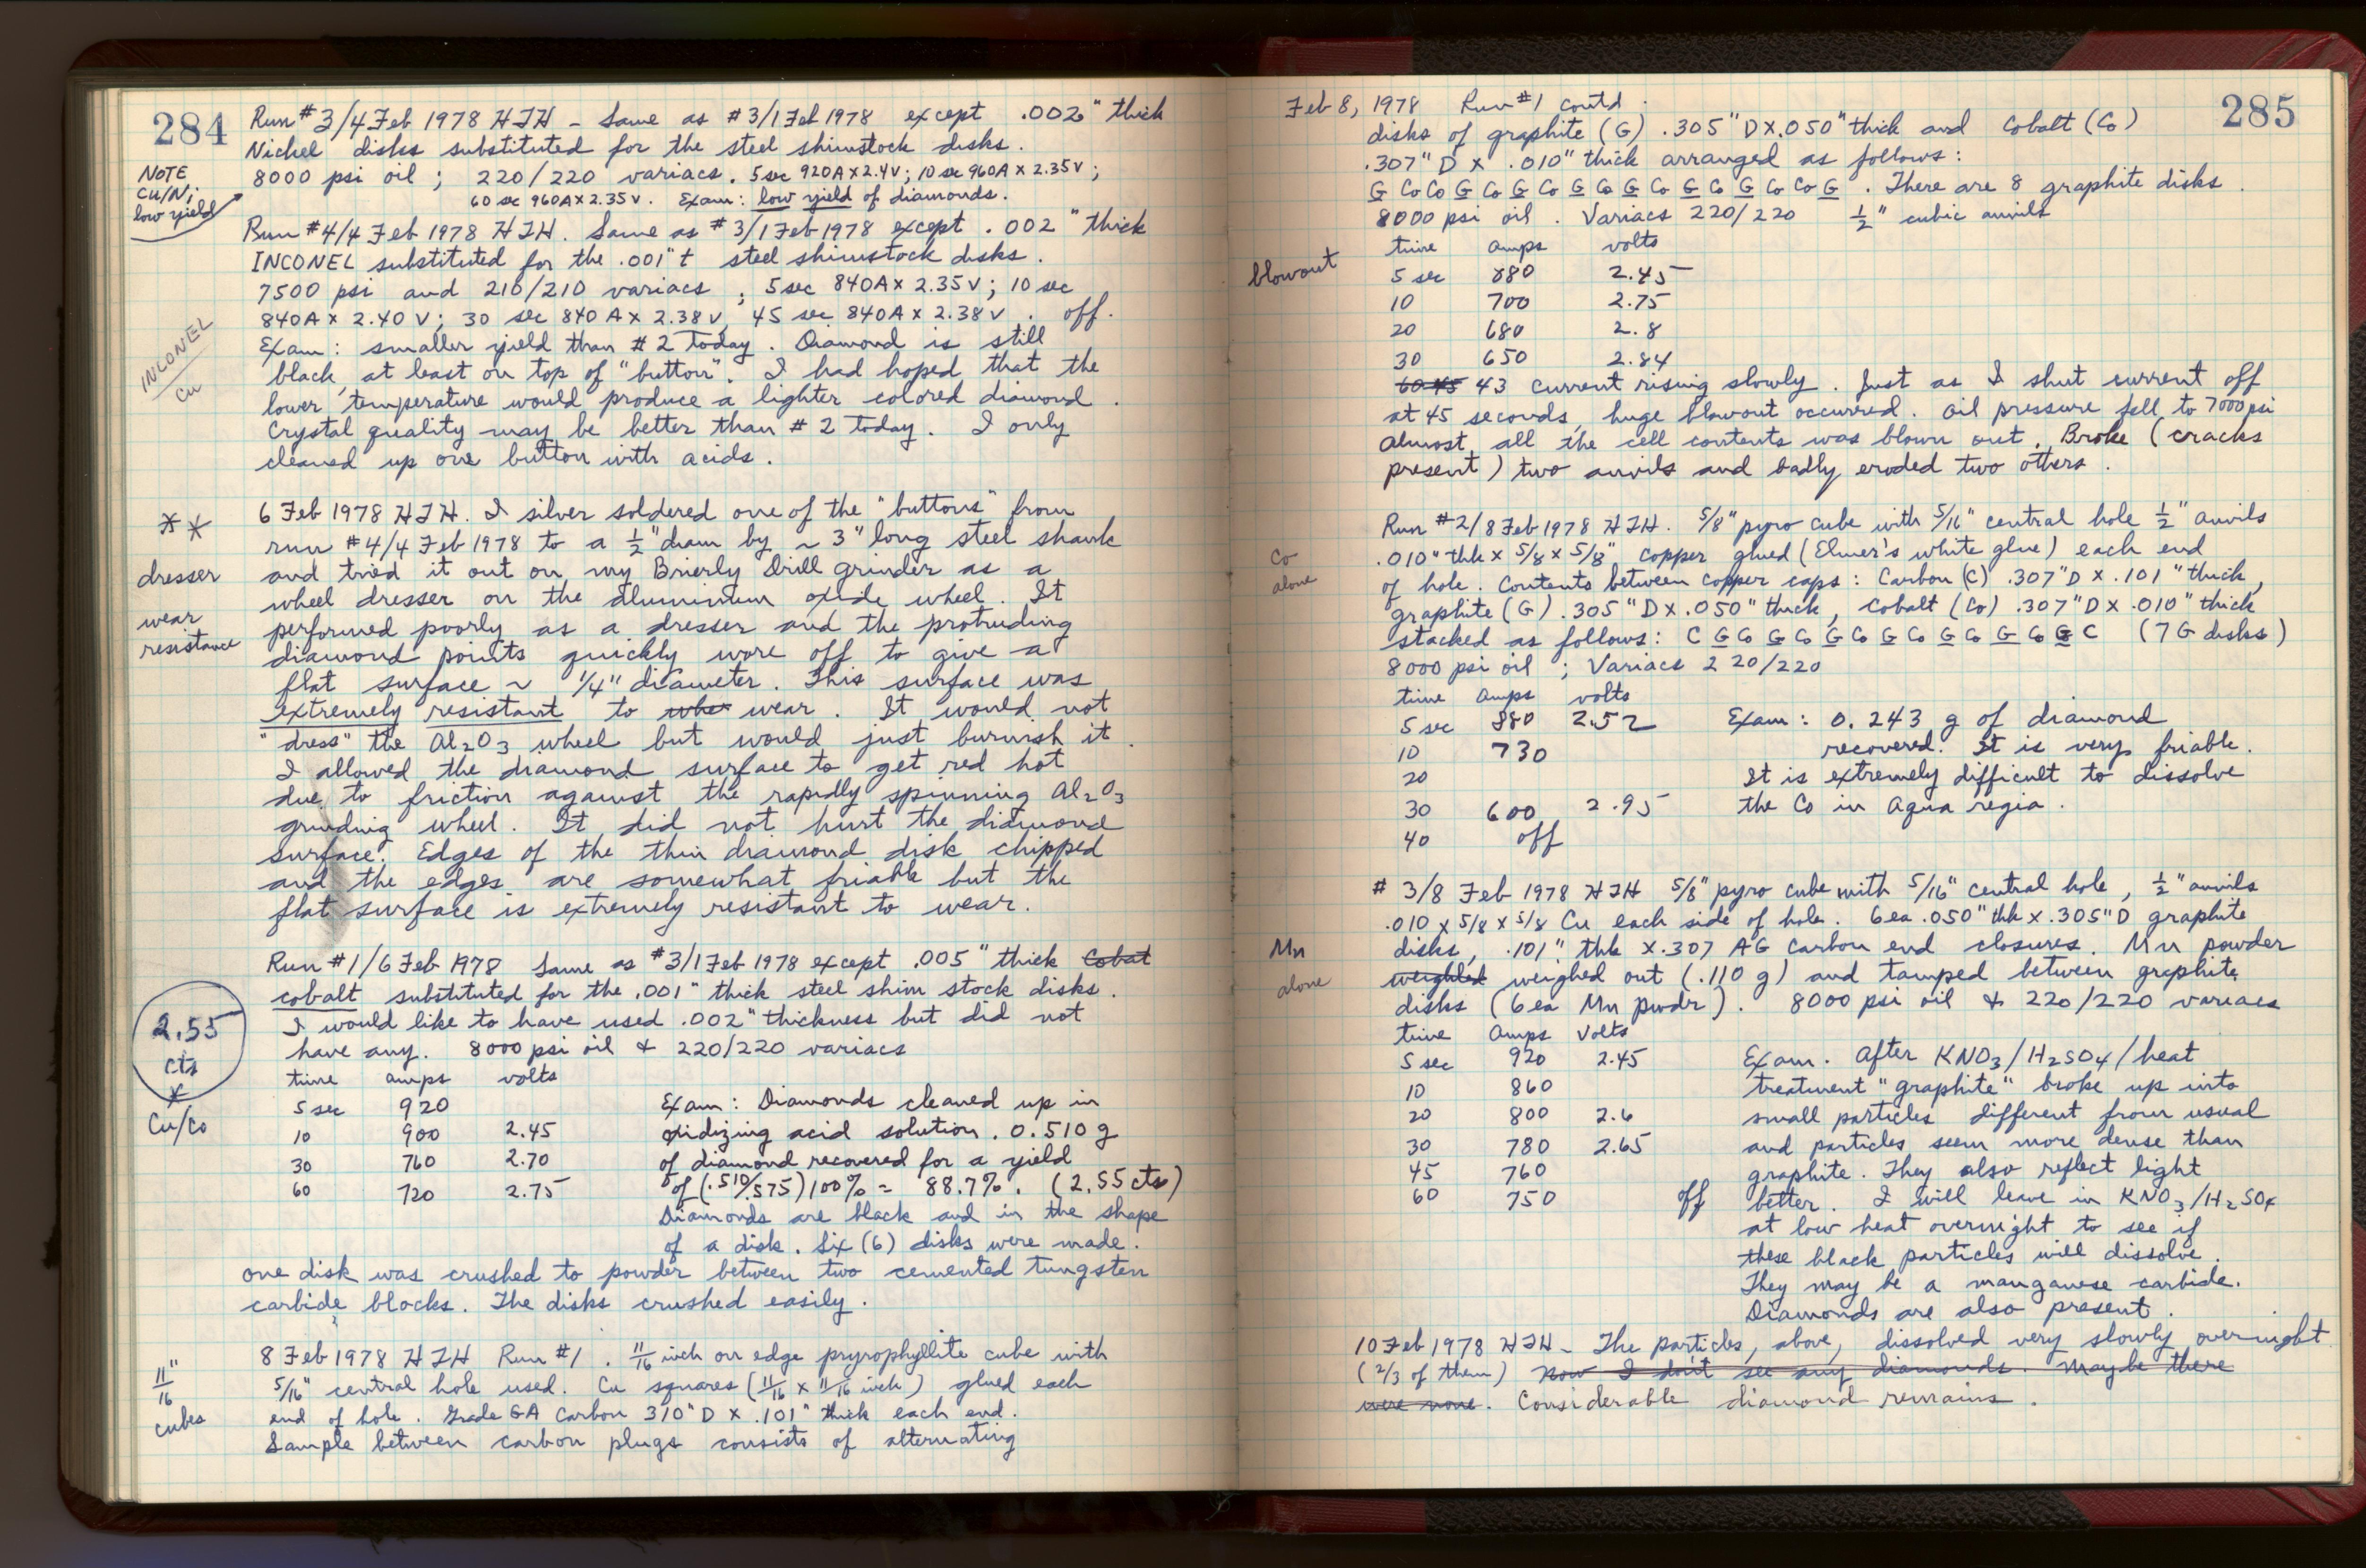 284
Run #3/4 Feb 1978 HTH - Same as #3/1 Feb 1978 except .002" thick
Nickel disks substituted for the steel shimstock disks.
NOTE
Cu/Ni
low yield
8000 psi oil ; 220/220 variacs. 5 sec 920A x 2.4V; 10 sec 960A x 2.35V;
60 sec 960A x 2.35V. Exam: low yield of diamonds.
Run #4/4 Feb 1978 HTH. Same as #3/1 Feb 1978 except .002" thick
INCONEL substituted for the .001"t steel shimstock disks.
7500 psi and 210/210 variacs ; 5 sec 840A x 2.35V; 10 sec
840A x 2.40V; 30 sec 840A x 2.38V, 45 sec 840A x 2.38V. off.
INCONEL
Cu
Exam: smaller yield than #2 Today. Diamond is still
black, at least on top of "button". I had hoped that the
lower temperature would produce a lighter colored diamond.
Crystal quality may be better than #2 Today. I only
cleaned up one button with acids.
**
dresser
wear
resistance
6 Feb 1978 HTH. I silver soldered one of the "buttons" from
run #4/4 Feb 1978 to a 1/2" diam by ~ 3" long steel shank
and tried it out on my Brierly Drill grinder as a
wheel dresser on the aluminum oxide wheel. It
performed poorly as a dresser and the protruding
diamond points quickly wore off to give a
flat surface ~ 1/4" diameter. This surface was
extremely resistant to wear. It would not
"dress" the Al2O3 wheel but would just burnish it.
I allowed the diamond surface to get red hot
due to friction against the rapidly spinning Al2O3
grinding wheel. It did not hurt the diamond
surface. Edges of the thin diamond disk chipped
and the edges are somewhat friable but the
flat surface is extremely resistant to wear.
Run #1/6 Feb 1978 Same as #3/1 Feb 1978 except .005" thick Cobat
cobalt substituted for the .001" thick steel shim stock disks.
I would like to have used .002" thickness but did not
have any. 8000 psi oil & 220/220 variacs
2.55
cts
*
Cu/Co
time amps volts
5 sec 920
10 900 2.45
30 760 2.70
60 720 2.75
Exam: Diamonds cleaned up in
oxidizing acid solution. 0.510 g
of diamond recovered for a yield
of (.510/.575)100% = 88.7%. (2.55 cts)
Diamonds are black and in the shape
of a disk. Six (6) disks were made.
one disk was crushed to powder between two cemented tungsten
carbide blocks. The disks crushed easily.
11/16"
cubes
8 Feb 1978 HTH Run #1. 11/16 inch on edge pryrophyllite cube with
5/16" central hole used. Cu squares (11/16 x 11/16 inch) glued each
end of hole. Grade GA Carbon 310"D x .101" thick each end.
Sample between carbon plugs consists of alternating
285
Feb 8, 1978 Run #1 contd.
disks of graphite (G) .305"D x .050" thick and Cobalt (Co)
.307"D x .010" thick arranged as follows:
G Co Co G Co G Co G Co G Co G Co G Co Co G. There are 8 graphite disks.
8000 psi oil. Variacs 220/220 1/2" cubic anvils
blowout
time amps volts
5 sec 880 2.45
10 700 2.75
20 680 2.8
30 650 2.84
60 45 43 current rising slowly. Just as I shut current off
at 45 seconds, huge blowout occurred. Oil pressure fell to 7000 psi
Almost all the cell contents was blown out. Broke (cracks
present) two anvils and badly eroded two others.
Co
alone
Run #2/8 Feb 1978 HTH. 5/8" pyro cube with 5/16" central hole 1/2" anvils
.010" thk x 5/8 x 5/8" copper glued (Elmer's white glue) each end
of hole. Contents between copper caps: Carbon (C) .307"D x .101" thick,
graphite (G) .305"D x .050" thick, Cobalt (Co) .307"D x .010" thick
stacked as follows: C G Co G Co G Co G Co G Co G Co G C (7 G disks)
8000 psi oil ; Variacs 220/220
time amps volts
5 sec 880 2.52
10 730
20
30 600 2.95
40 off
Exam: 0.243 g of diamond
recovered. It is very friable.
It is extremely difficult to dissolve
the Co in Aqua regia.
Mn
alone
#3/8 Feb 1978 HTH 5/8" pyro cube with 5/16" central hole, 1/2" anvils
.010 x 5/8 x 5/8 Cu each side of hole. 6 ea .050" thk x .305"D graphite
disks, .101" thk x .307 AG Carbon end closures. Mn powder
weighted weighed out (.110 g) and tamped between graphite
disks (6 ea Mn pwdr). 8000 psi oil & 220/220 variacs
time Amps Volts
5 sec 920 2.45
10 860
20 800 2.6
30 780 2.65
45 760
60 750 off
Exam. After KNO3/H2SO4/heat
treatment "graphite" broke up into
small particles different from usual
and particles seem more dense than
graphite. They also reflect light
better. I will leave in KNO3/H2SO4
at low heat overnight to see if
these black particles will dissolve.
They may be a manganese carbide.
Diamonds are also present.
10 Feb 1978 HTH - The particles, above, dissolved very slowly overnight
(2/3 of them) Now I don't see any diamonds. Maybe there
were none. Considerable diamond remains.